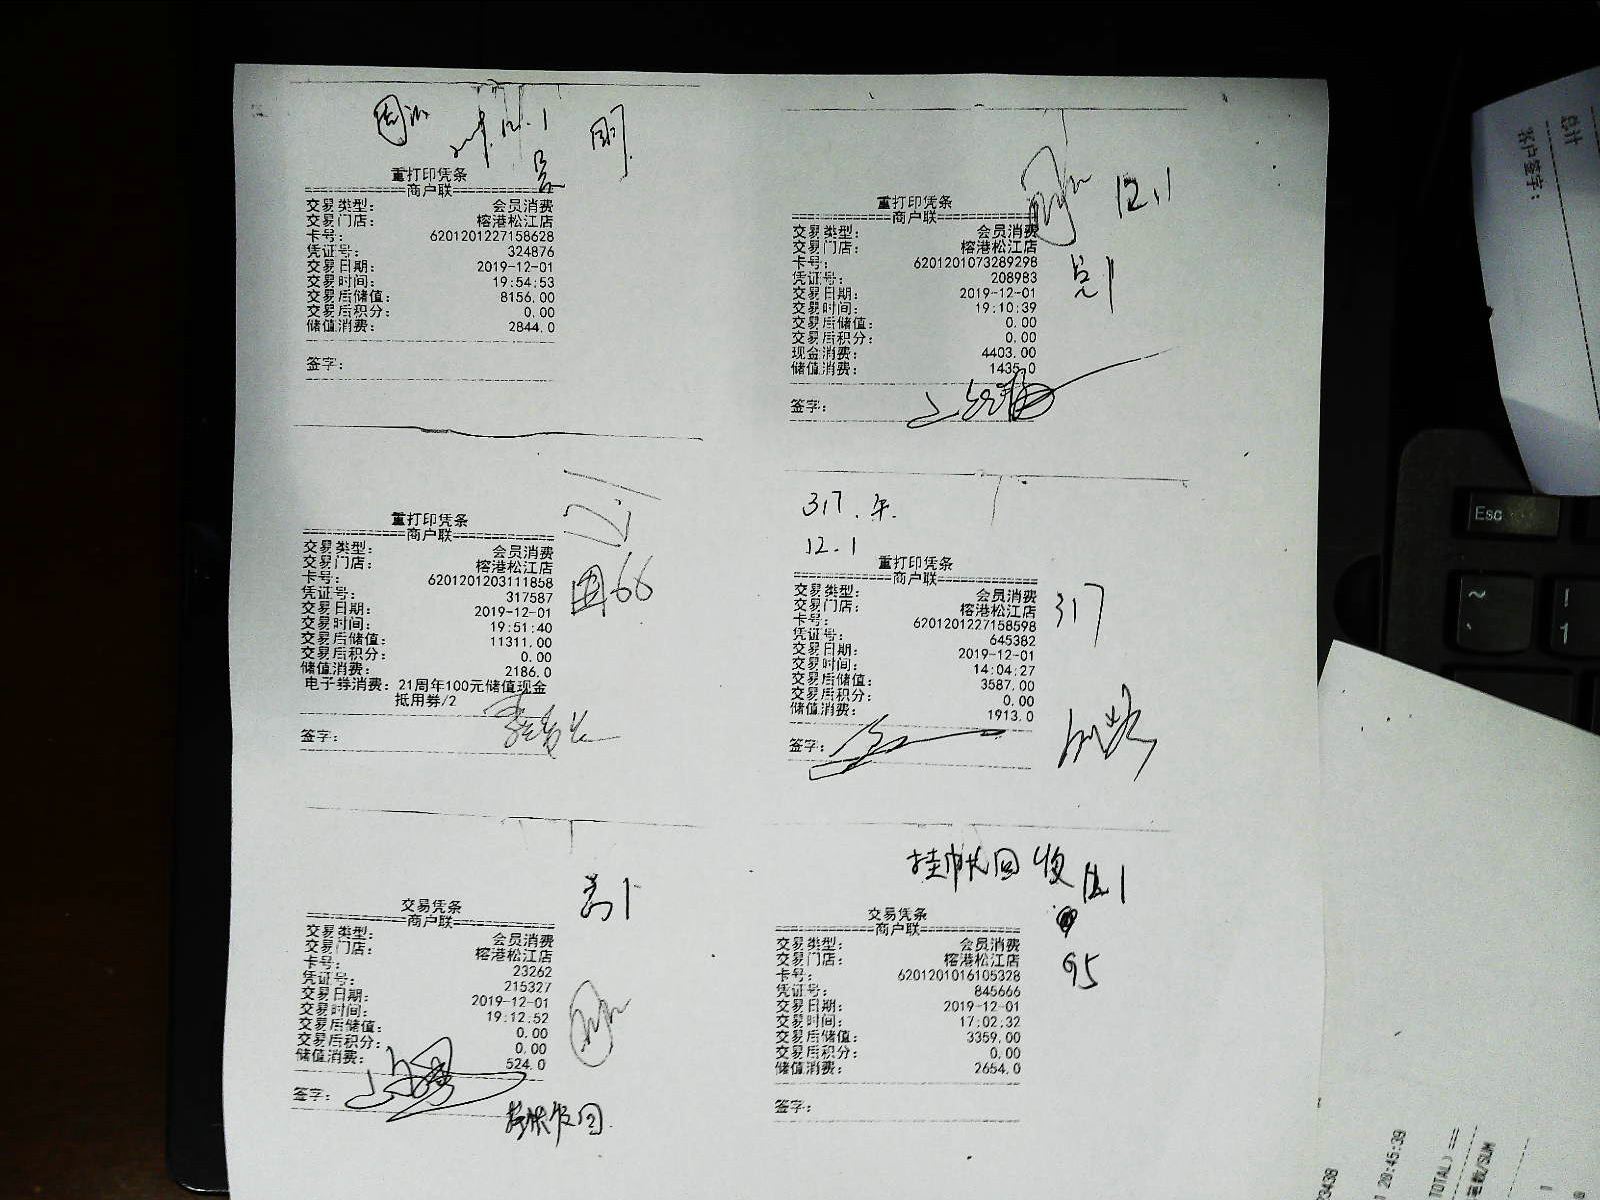 12.1
重打印凭条
商户联
交易类型: 会员消费
交易门店: 榕港松江店
卡号: 6201201227158628
凭证号: 324876
交易日期: 2019-12-01
交易时间: 19:54:53
交易后储值: 8156.00
交易后积分: 0.00
储值消费: 2844.0
签字:
12.1
重打印凭条
商户联
交易类型: 会员消费
交易门店: 榕港松江店
卡号: 6201201073289298
凭证号: 208983
交易日期: 2019-12-01
交易时间: 19:10:39
交易后储值: 0.00
交易后积分: 0.00
现金消费: 4403.00
储值消费: 1435.0
签字:
12.1
66
重打印凭条
商户联
交易类型: 会员消费
交易门店: 榕港松江店
卡号: 6201201203111858
凭证号: 317587
交易日期: 2019-12-01
交易时间: 19:51:40
交易后储值: 11311.00
交易后积分: 0.00
储值消费: 2186.0
电子券消费: 21周年100元储值现金
抵用券/2
签字:
317.
12.1
重打印凭条
商户联
交易类型: 会员消费
交易门店: 榕港松江店
卡号: 6201201227158598
凭证号: 645382
交易日期: 2019-12-01
交易时间: 14:04:27
交易后储值: 3587.00
交易后积分: 0.00
储值消费: 1913.0
签字:
317
交易凭条
商户联
交易类型: 会员消费
交易门店: 榕港松江店
卡号: 23262
凭证号: 215327
交易日期: 2019-12-01
交易时间: 19:12:52
交易后储值: 0.00
交易后积分: 0.00
储值消费: 524.0
签字:
挂帐回收
95
交易凭条
商户联
交易类型: 会员消费
交易门店: 榕港松江店
卡号: 6201201016105328
凭证号: 845666
交易日期: 2019-12-01
交易时间: 17:02:32
交易后储值: 3359.00
交易后积分: 0.00
储值消费: 2654.0
签字:
总计
客户签字:
Esc
~
!
1
20:45:39